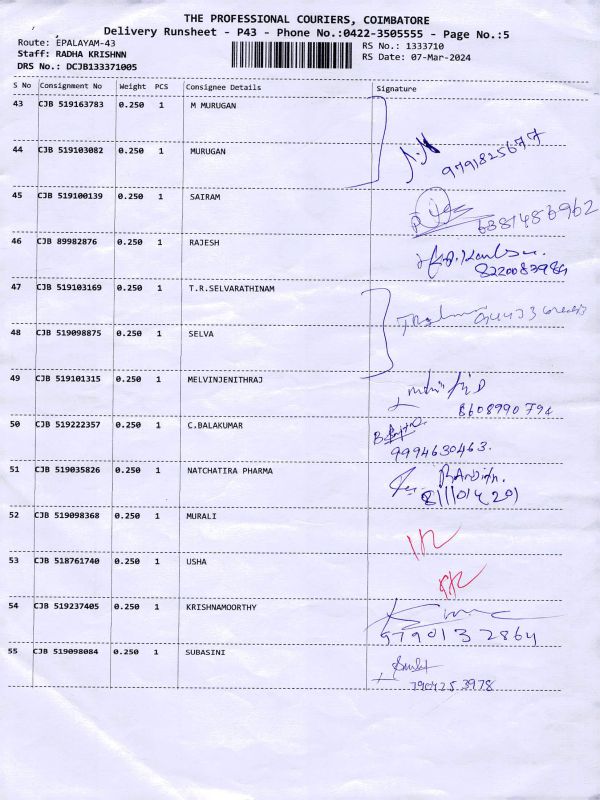 THE PROFESSIONAL COURIERS, COIMBATORE
Delivery Runsheet - P43 - Phone No.:0422-3505555 - Page No.:5
Route: EPALAYAM-43
Staff: RADHA KRISHNN
DRS No.: DCJB133371005
RS No.: 1333710
RS Date: 07-Mar-2024
S No Consignment No Weight PCS Consignee Details Signature
43 CJB 519163783 0.250 1 M MURUGAN
44 CJB 519103082 0.250 1 MURUGAN 9791825677
45 CJB 519100139 0.250 1 SAIRAM 6381483962
46 CJB 89982876 0.250 1 RAJESH 8220083984
47 CJB 519103169 0.250 1 T.R.SELVARATHINAM
48 CJB 519098875 0.250 1 SELVA
49 CJB 519101315 0.250 1 MELVINJENITHRAJ 8608990794
50 CJB 519222357 0.250 1 C.BALAKUMAR 9994630463.
51 CJB 519035826 0.250 1 NATCHATIRA PHARMA
52 CJB 519098368 0.250 1 MURALI
53 CJB 518761740 0.250 1 USHA
54 CJB 519237405 0.250 1 KRISHNAMOORTHY 9790132864
55 CJB 519098084 0.250 1 SUBASINI 7904253978